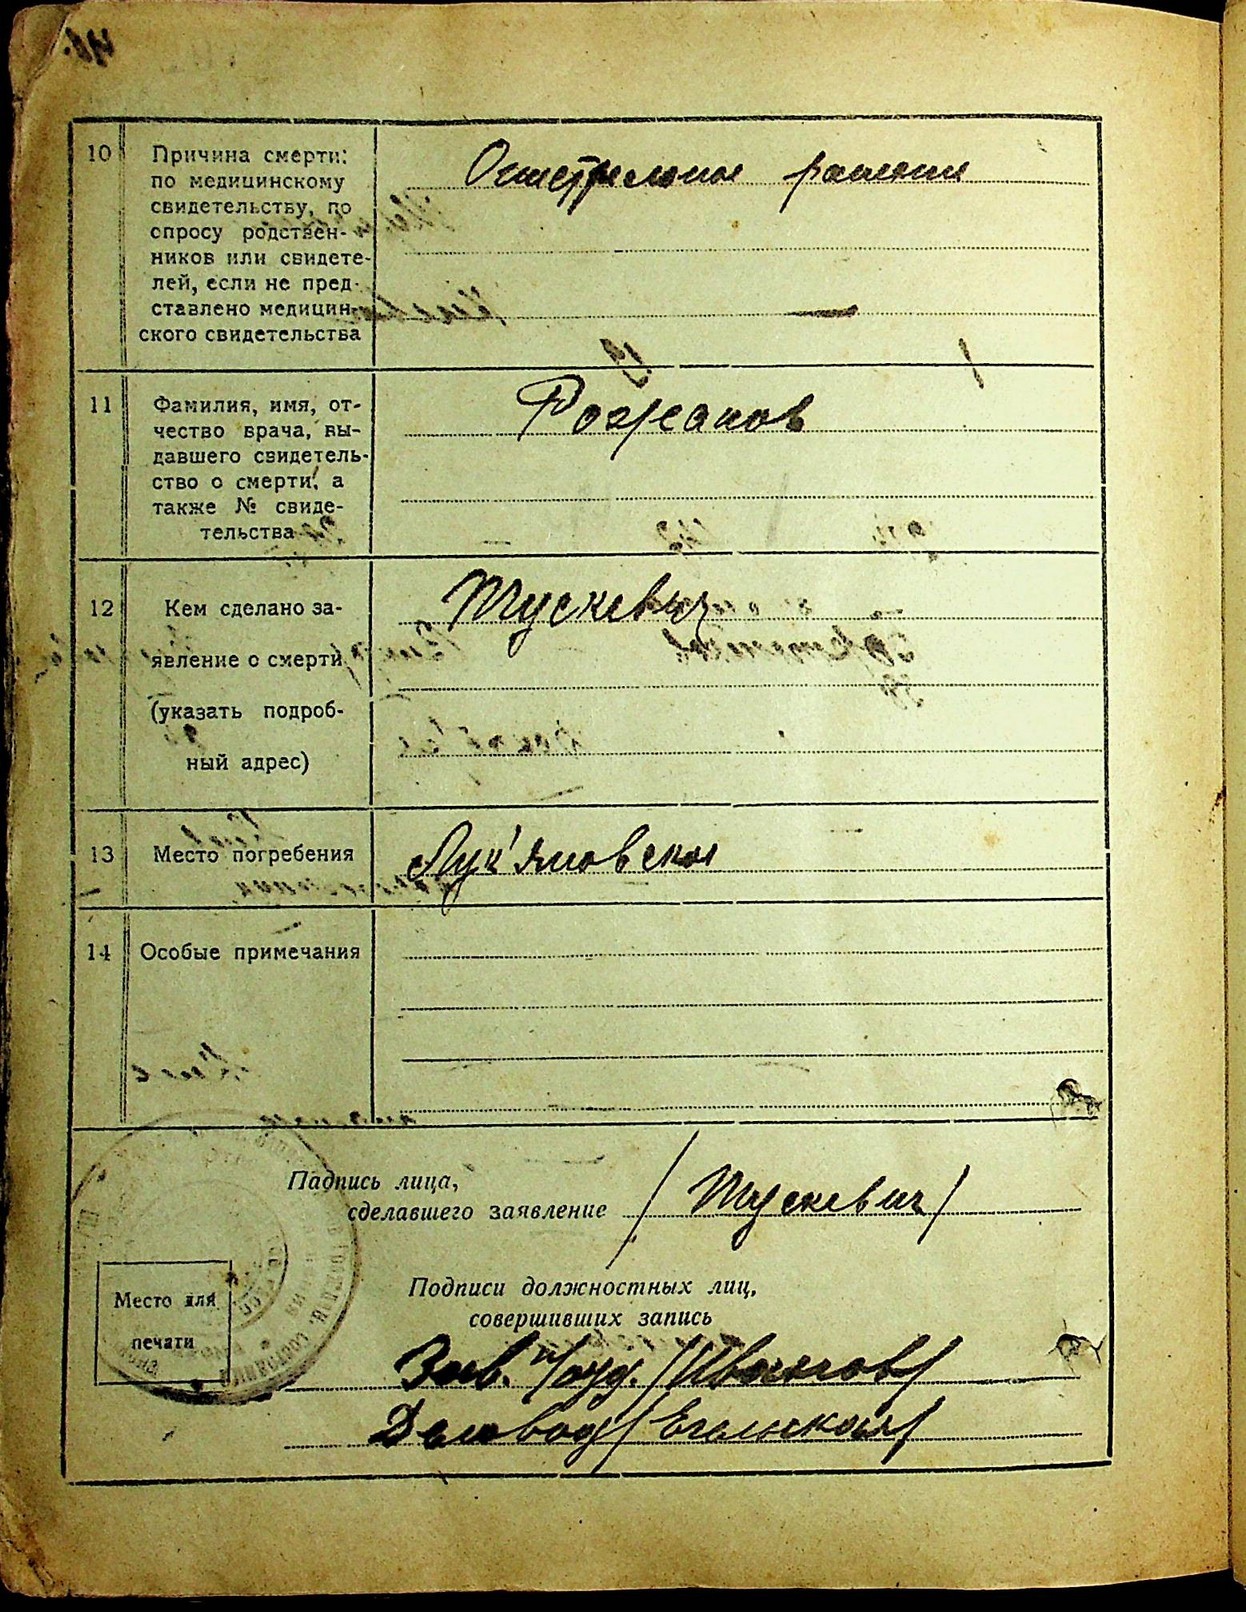 10 Причина смерти:
по медицинскому
свидетельству, по
спросу родствен-
ников или свидете-
лей, если не пред-
ставлено медицин-
ского свидетельства
ранение
11 Фамилия, имя, от-
чество врача, вы-
давшего свидетель-
ство о смерти, а
также № свиде-
тельства
Рожанов
12 Кем сделано за-
явление о смерти
(указать подроб-
ный адрес)
Тускевич
13 Место погребения
Лук'яновское
14 Особые примечания
Падпись лица,
сделавшего заявление /Тускевич/
Место для
печати
Подписи должностных лиц,
совершивших запись
Зав. /Иванов/
Деловод